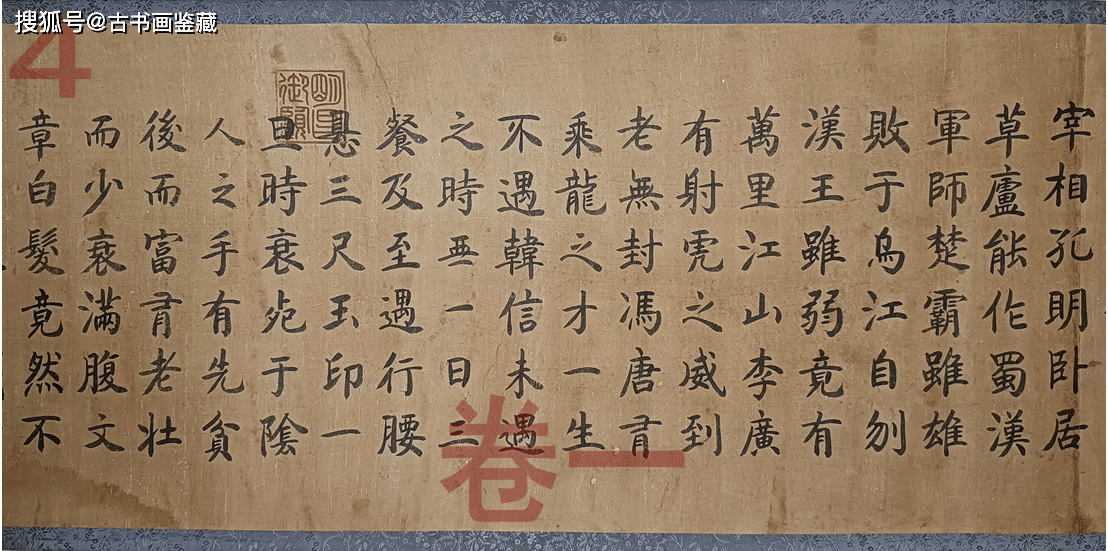 搜狐号@古书画鉴藏
4
明昌
御覽
宰相孔明卧居
草廬能作蜀漢
軍師楚霸雖雄
敗于烏江自刎
漢王雖弱竟有
萬里江山李廣
有射虎之威到
老無封馮唐有
乘龍之才一生
不遇韓信未遇
之時無一日三
餐及至遇行腰
悬三尺玉印一
旦時衰死于陰
人之手有先貧
後而富有老壯
而少衰滿腹文
章白髮竟然不
卷一